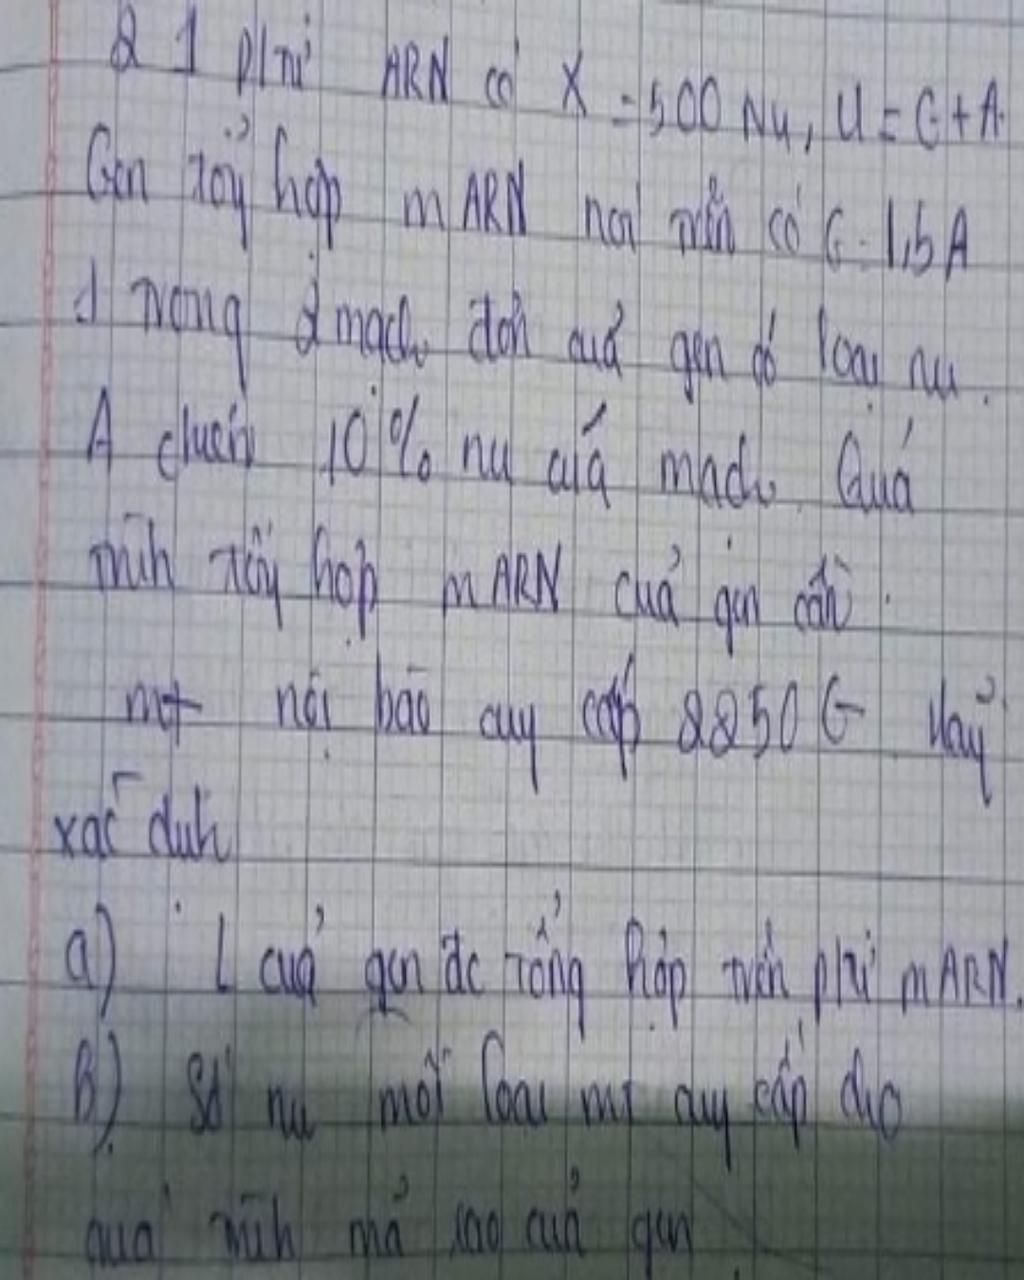 2 1 p/tử ARN có X = 500 Nu, U = G + A.
Gen tổng hợp mARN nói trên có G = 1,5A
1 trong 2 mạch đơn của gen có loại nu.
A chiếm 10% nu của mạch. Quá
trình tổng hợp mARN của gen cần
mt nội bào cung cấp 2250 G Hãy
xác định
a) L của gen đc tổng hợp trên p/tử mARN.
b) Số nu mỗi loại mt cung cấp cho
quá trình mã sao của gen